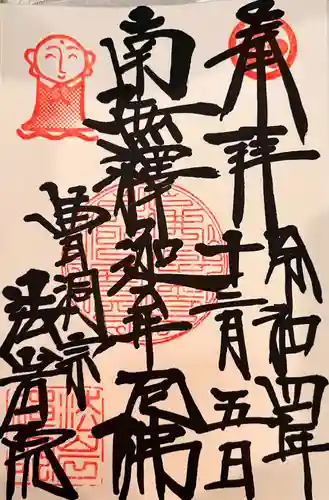 奉拝
令和四年
十二月五日
南無釋迦牟尼佛
曹洞宗